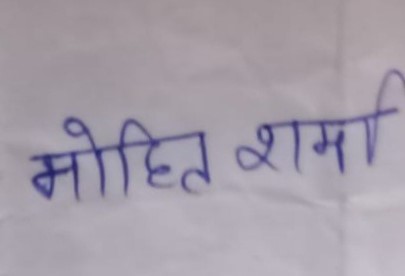 मोहित शर्मा